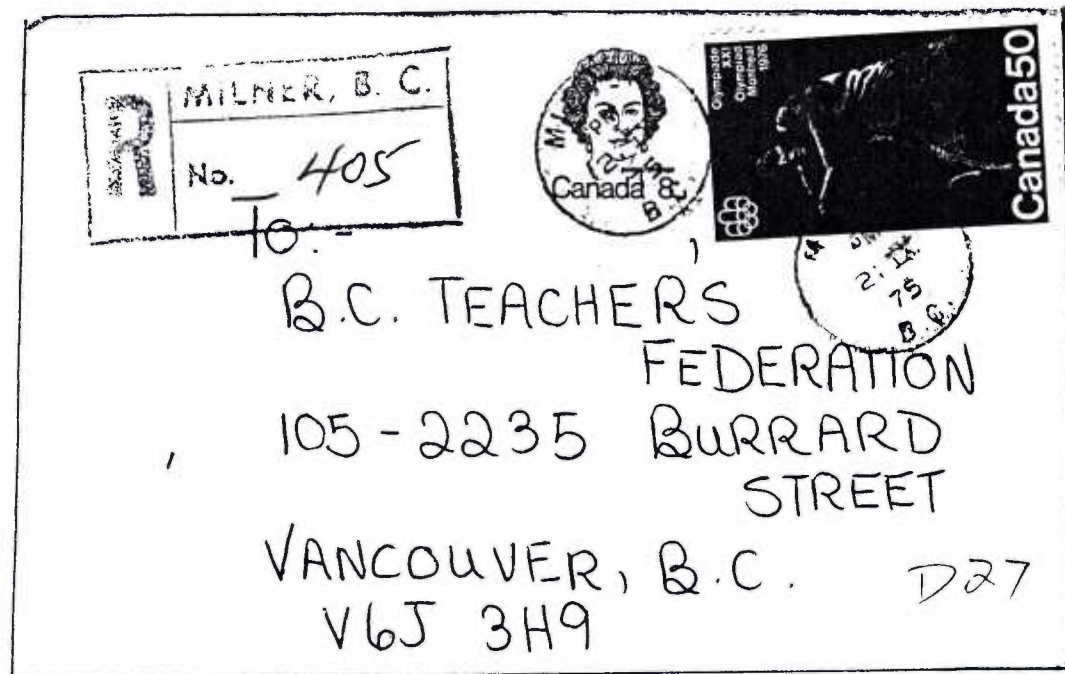 R
MILNER, B. C.
No. 405
Canada 8
B C
Olympiade
XXI
Olympiad
Montréal
1976
Canada50
PM
IX
75
B C.
TO:-
B.C. TEACHERS
FEDERATION
105-2235 BURRARD
STREET
VANCOUVER, B.C.
V6J 3H9
D27